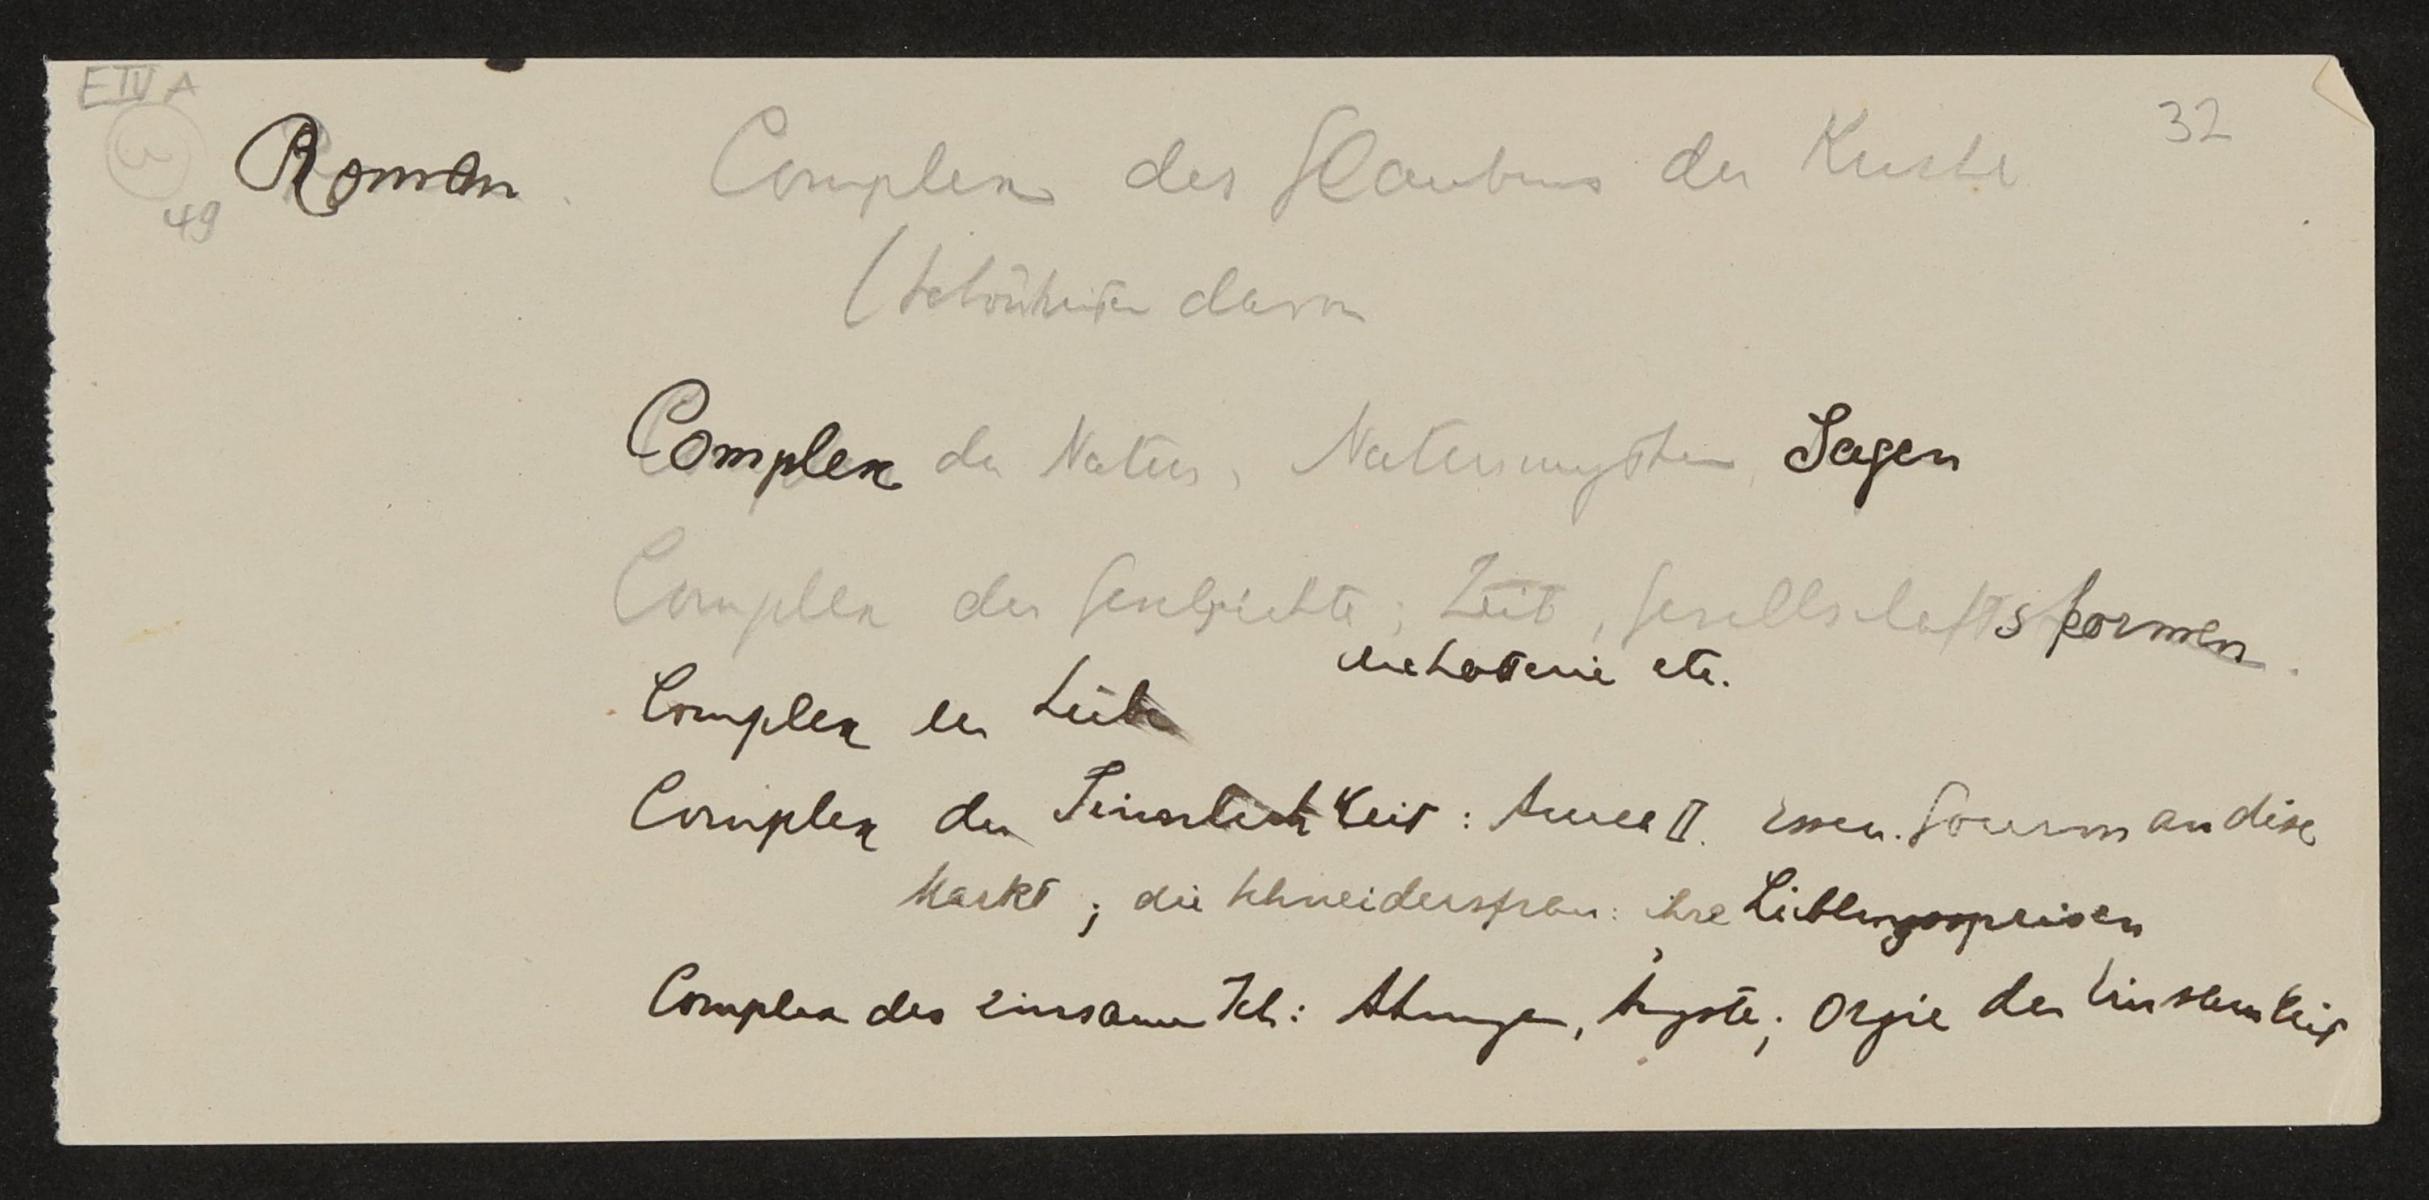 E IV A
32
Roman. Complex des Glaubens der Kirche
49
(Schönheiten davon
Complex der Natur, Naturmythen, Sagen
Complex der Geschichte; Zeit, Gesellschaftsformen.
etc.
Complex der Liebe
Complex der Sinnlichkeit: II. Essen. Gourmandise
Markt; die Schneidersfrau: ihre Lieblingsspeisen
Complex des einsamen Ich: Ahnungen, Ängste; Orgie der Einsamkeit